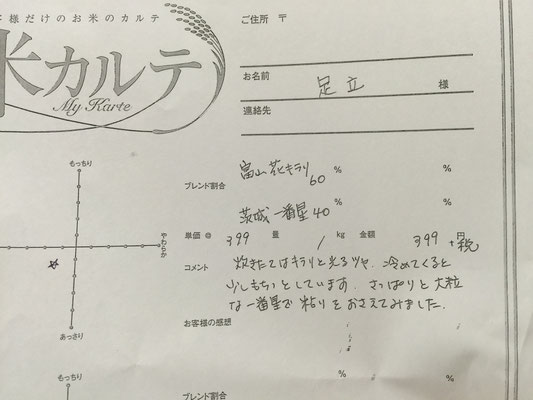 客様だけのお米のカルテ
米カルテ
My Karte
ご住所 〒
お名前 足立 様
連絡先
もっちり
やわらか
あっさり
ブレンド割合 富山 花キラリ 60 % %
茨城 一番星 40 % %
単価@ 399 量 1 kg 金額 399 円+税
コメント 炊きたてはキラリと光るツヤ、冷めてくると
少しもちっとしています。さっぱりと大粒
な一番星で粘りをおさえてみました。
お客様の感想
もっちり
% %
ブレンド割合